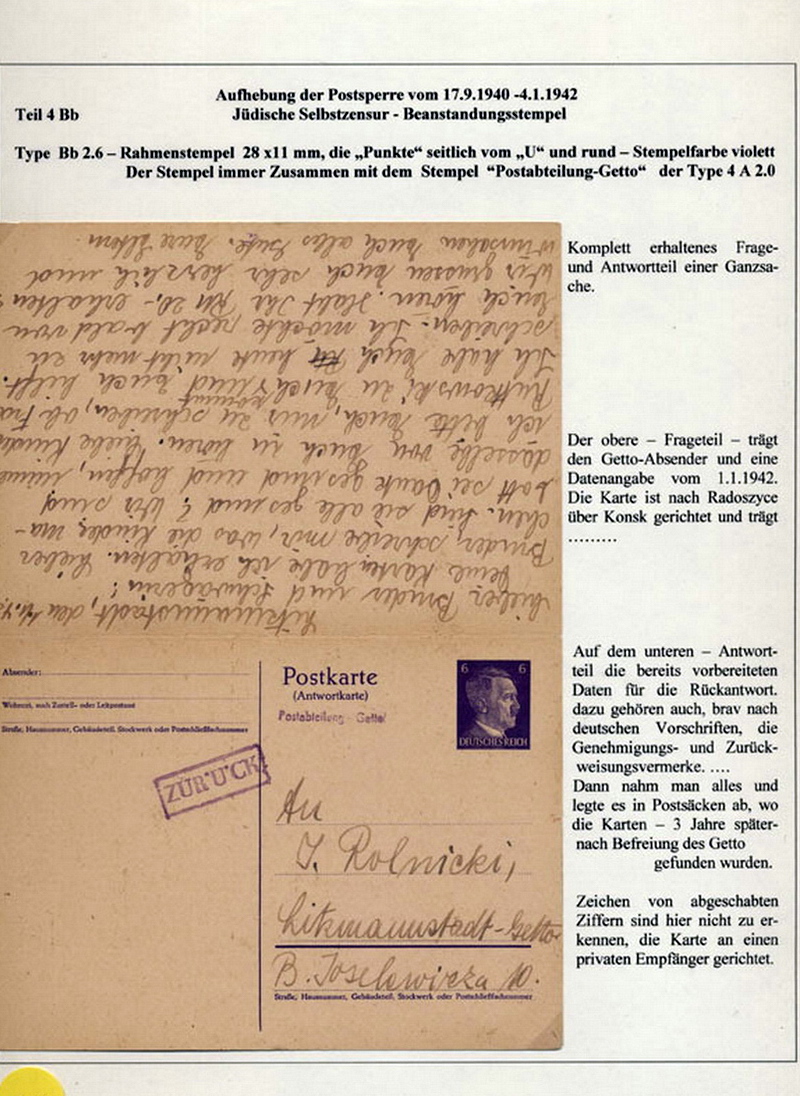 Aufhebung der Postsperre vom 17.9.1940 -4.1.1942
Teil 4 Bb
Jüdische Selbstzensur - Beanstandungsstempel
Type Bb 2.6 – Rahmenstempel 28 x11 mm, die „Punkte“ seitlich vom „U“ und rund – Stempelfarbe violett
Der Stempel immer Zusammen mit dem Stempel “Postabteilung-Getto“ der Type 4 A 2.0
Litzmannstadt, den
Lieber Bruder und Schwägerin!
Deine Karten habe ich erhalten. Lieber
Bruder, schreibe mir, was die Kinder ma-
chen. Sind sie alle gesund? Wir sind
Gott sei Dank gesund und hoffen,
dasselbe von Euch zu hören. Liebe
ich bitte Euch, mir zu schreiben, ob
Rutkowski zu Euch kommt und Euch hilft.
Ich habe Euch heute nicht mehr zu
schreiben. Ich möchte recht bald von
Euch hören. Habt Ihr RM 20,- erhalten
Wir grüssen Euch sehr herzlich und
wünschen Euch alles Gute. Eure Eltern
Komplett erhaltenes Frage-
und Antwortteil einer Ganzsa-
che.
Der obere – Frageteil – trägt
den Getto-Absender und eine
Datenangabe vom 1.1.1942.
Die Karte ist nach Radoszyce
über Konsk gerichtet und trägt
.........
Absender:
Wohnort, auch Zustell- oder Leitpostamt
Straße, Hausnummer, Gebäudeteil, Stockwerk oder Postschließfachnummer
Postkarte
(Antwortkarte)
Postabteilung - Getto
6 6
DEUTSCHES REICH
ZUR'U'CK
An
J. Rolnicki,
Litzmannstadt-Getto
B. Joselewicza 10.
Straße, Hausnummer, Gebäudeteil, Stockwerk oder Postschließfachnummer
Auf dem unteren – Antwort-
teil die bereits vorbereiteten
Daten für die Rückantwort.
dazu gehören auch, brav nach
deutschen Vorschriften, die
Genehmigungs- und Zurück-
weisungsvermerke. ....
Dann nahm man alles und
legte es in Postsäcken ab, wo
die Karten – 3 Jahre später-
nach Befreiung des Getto
gefunden wurden.
Zeichen von abgeschabten
Ziffern sind hier nicht zu er-
kennen, die Karte an einen
privaten Empfänger gerichtet.